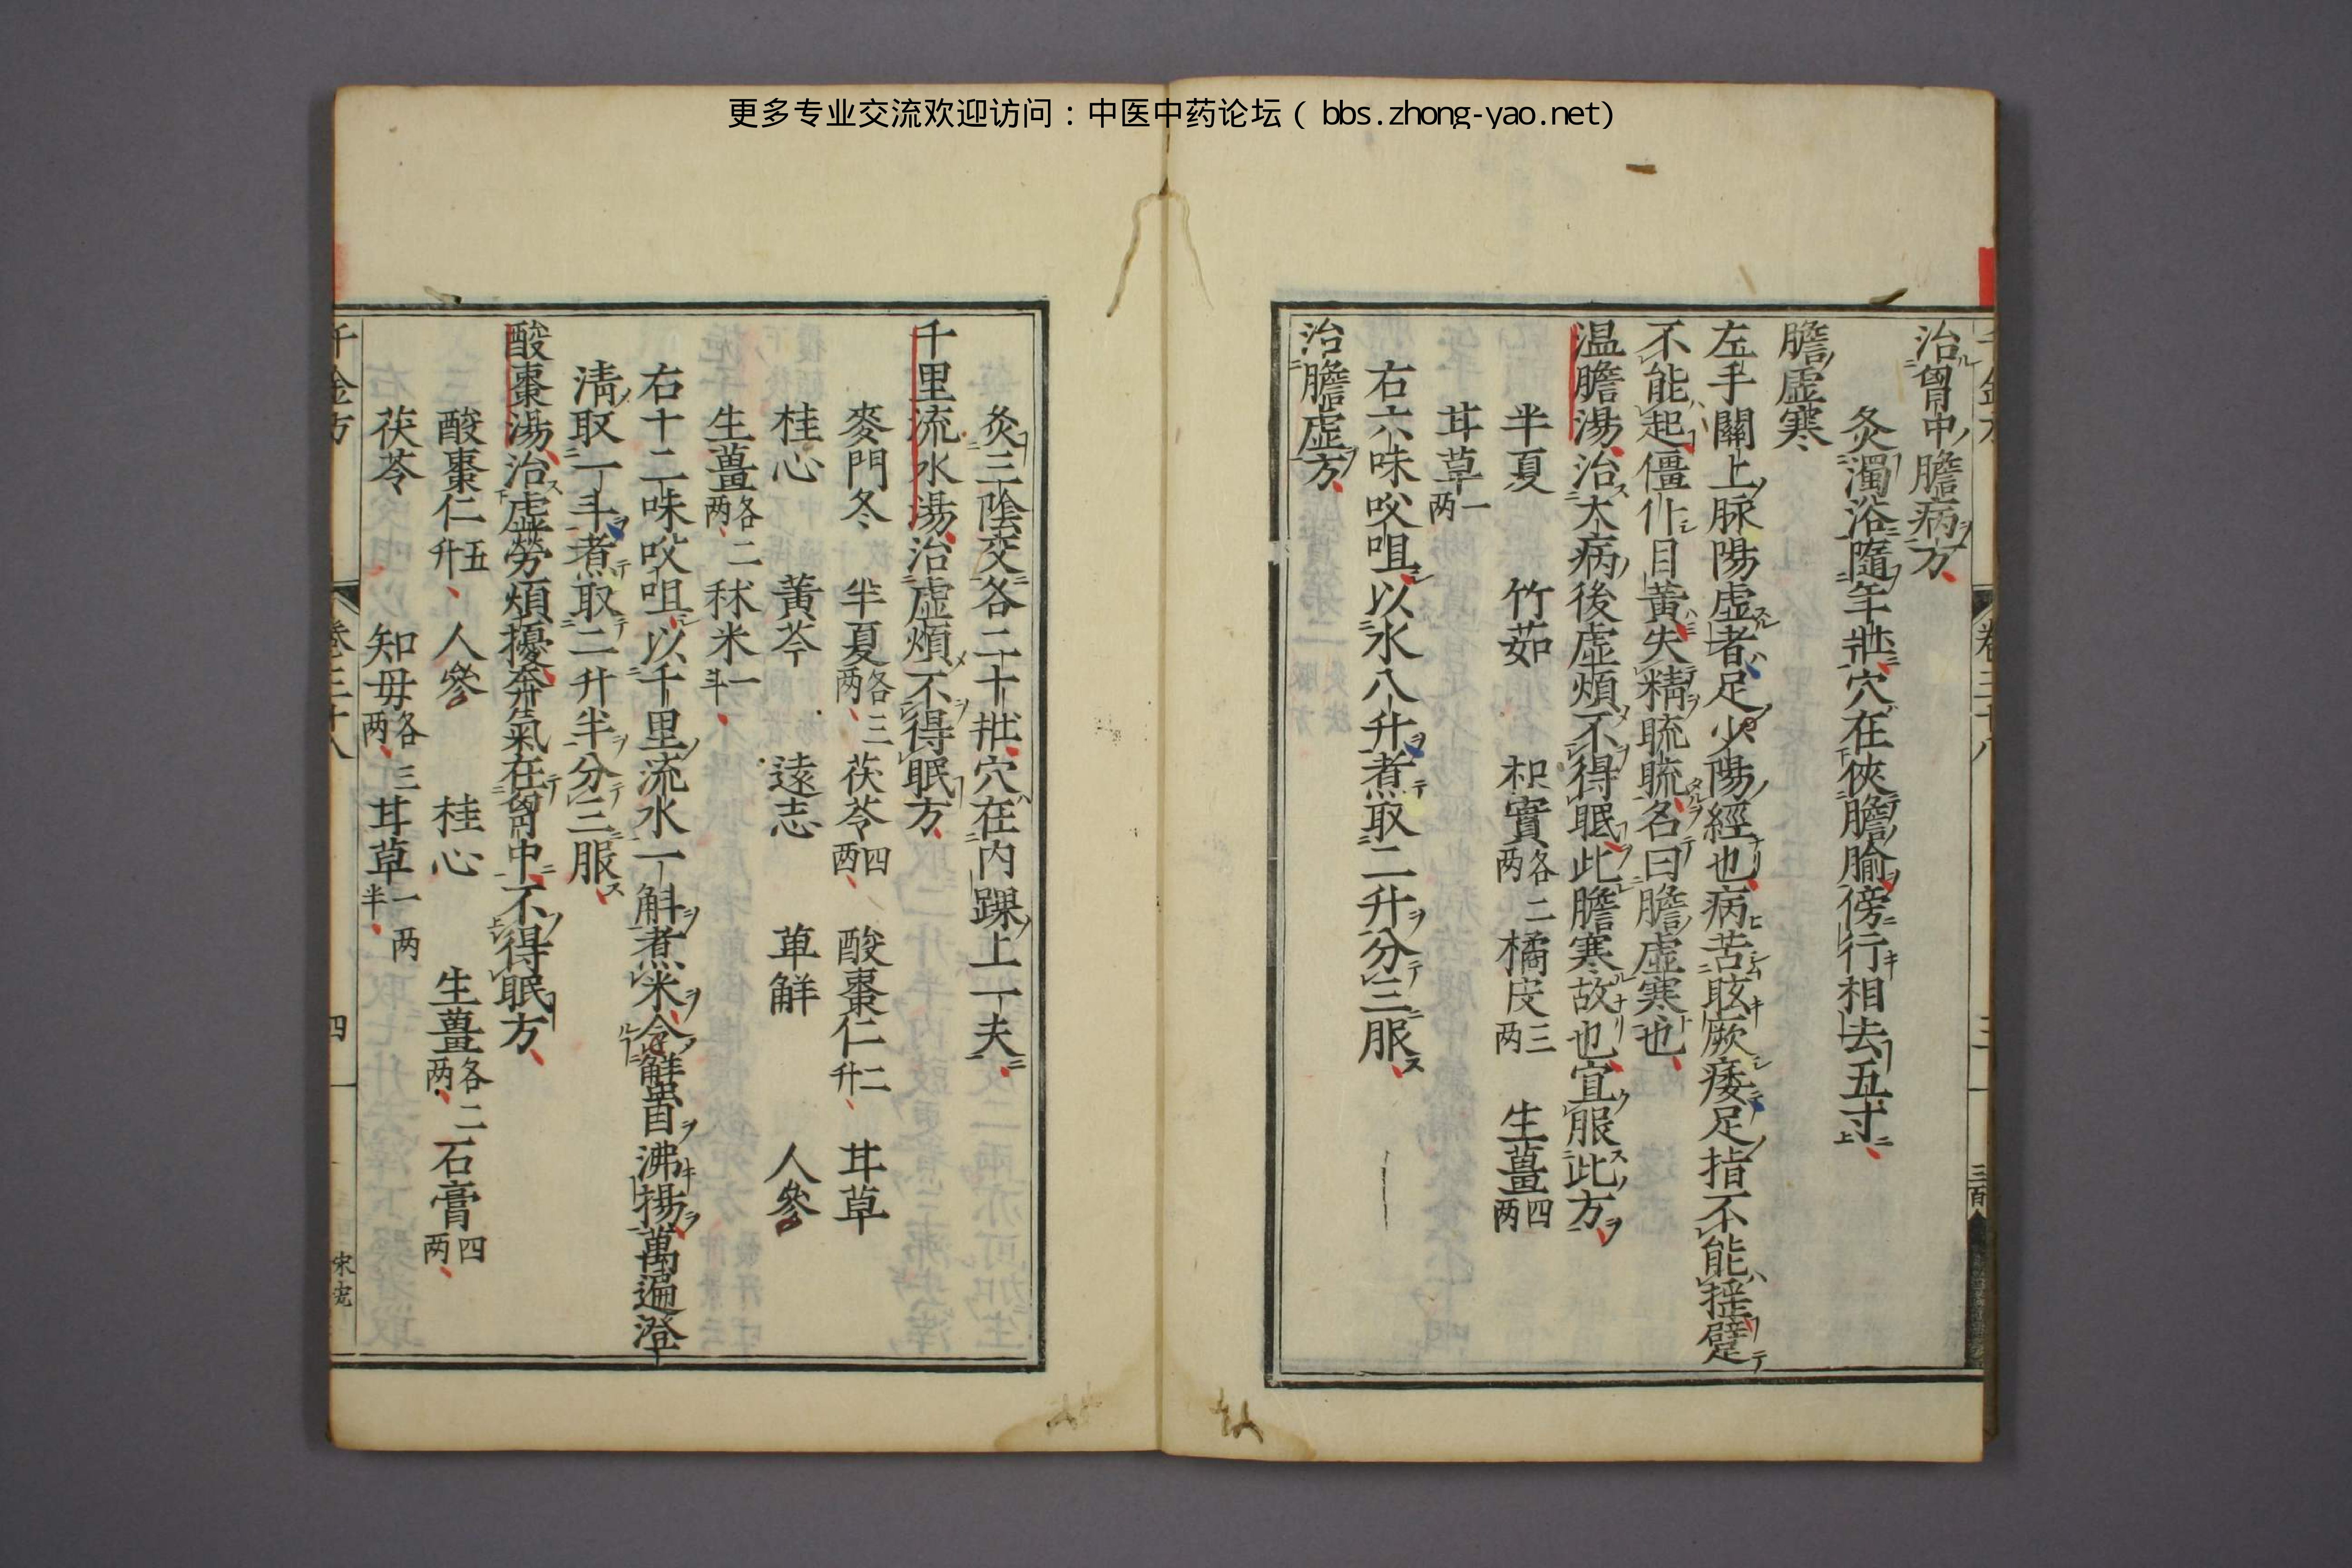 更多专业交流欢迎访问：中医中药论坛（ bbs.zhong-yao.net）
治胷中膽病方
灸濁浴隨年壯穴在俠膽腧傍行相去五寸
膽虚寒
左手關上脉陽虚者足少陽經也病苦眩厥痿足指不能揺躄
不能起僵仆目黃失精䀮䀮名曰膽虚寒也
温膽湯治大病後虚煩不得眠此膽寒故也宜服此方
半夏 竹茹 枳實各二两 橘皮三两 生薑四两
甘草一两
右六味㕮咀以水八升煮取二升分三服
治膽虚方
灸三陰交各二十壯穴在内踝上一夫
千里流水湯治虚煩不得眠方
麥門冬 半夏各三两 茯苓四两 酸棗仁二升 甘草
桂心 黃芩 遠志 萆解 人參
生薑各二两 秫米一斗
右十二味㕮咀以千里流水一斛煮米令蟹目沸揚萬遍澄
淸取一斗煮取二升半分三服
酸棗湯治虚勞煩擾奔氣在胷中不得眠方
酸棗仁五升 人參 桂心 生薑各二两 石膏四两
茯苓 知母各三两 甘草一两半
千金方 卷三十八 四